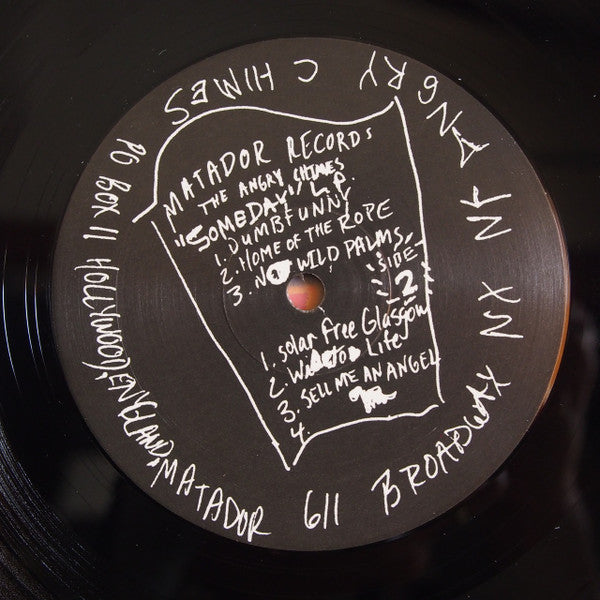 MATADOR RECORDS
THE ANGRY CHIMES
"SOMEDAY" L.P.
1. DUMBFUNNY
2. HOME OF THE ROPE
3. NO WILD PALMS
"SIDE
2"
1. solar Free Glasgow
2. Life
3. SELL ME AN ANGEL
4.
ANGRY CHIMES
PO BOX 11 HOLLYWOOD, ENGLAND, MATADOR 611 BROADWAY NX NY